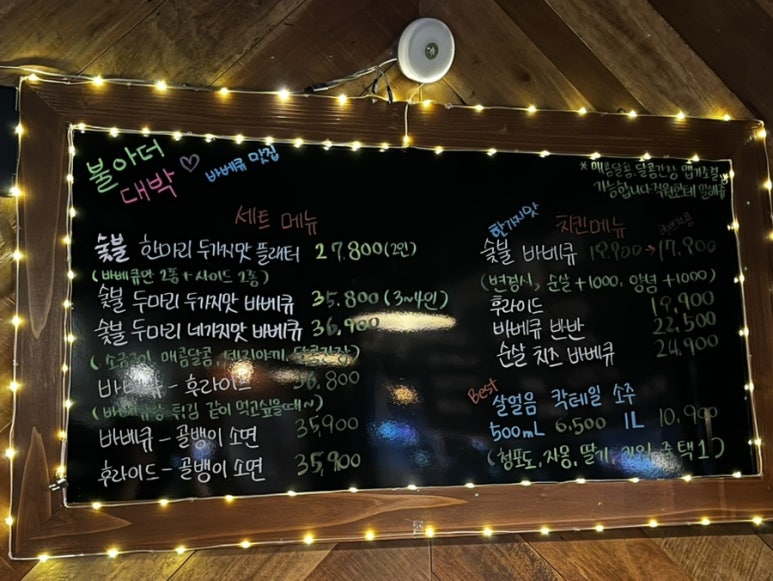 불아더
대박 ♡ 바베큐 맛집
* 매콤달콤, 달콤간장 맵기조절
가능합니다
세트 메뉴
숯불 한마리 두가지맛 플래터 27,800 (2인)
(바베큐만 2종 + 사이드 2종)
숯불 두마리 두가지맛 바베큐 35,800 (3~4인)
숯불 두마리 네가지맛 바베큐 36,900
(소금구이, 매콤달콤, 데리야끼, 달콤간장)
바베큐 - 후라이드 800
튀김 같이 먹고싶을때~)
바베큐 - 골뱅이 소면 35,900
후라이드 - 골뱅이 소면 35,900
한가지맛 치킨메뉴
숯불 바베큐 19,900 → 17,900
(변경시, 순살 +1000, 양념 +1000)
후라이드 19,900
바베큐 반반 22,500
순살 치즈 바베큐 24,900
Best
살얼음 칵테일 소주
500mL 6,500 1L 10,900
(청포도, 자몽, 딸기 중 택1)